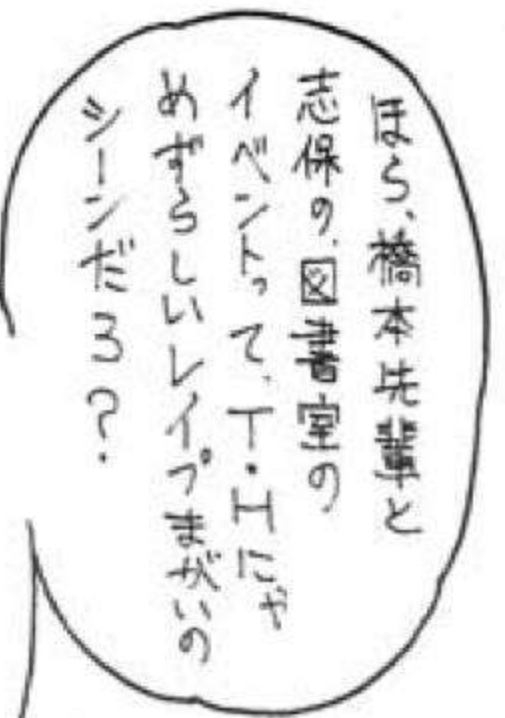 ほら、橋本先輩と
志保の、図書室の
イベントって、T・Hにゃ
めずらしいレイプまがいの
シーンだろ？